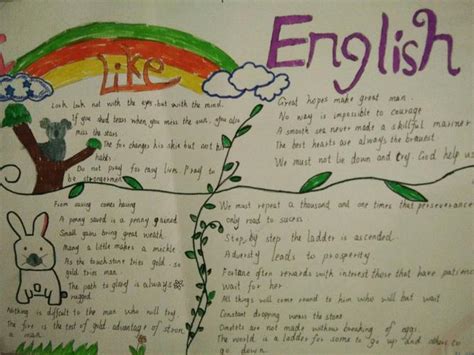 I Like English
Look Look not with the eyes but with the mind.
If you shed tears when you miss the sun, you also
miss the stars
The fox changes his skin but not his
habits
Do not pray for easy lives. Pray to
be stronger men
Great hopes make great man
No way is impossible to courage
A smooth sea never made a skillful mariner
The best hearts are always the bravest
We must not lie down and cry. God help us
From saving comes having
A penny saved is a penny gained
Small gains bring great wealth
Many a little makes a mickle
As the touchstone tries gold, so
gold tries man
The path to glory is always
rugged
Nothing is difficult to the man who will try
The fire is the test of gold advantage of strong
a man
We must repeat a thousand and one times that perseverance
only road to success
Step by step the ladder is ascended
Adversity leads to prosperity
Fortune often rewards with interest those that have patient
wait for her
All things will come round to him who will but wait
Constant dropping wears the stone
Omelets are not made without breaking of eggs
The world is a ladder for some to go up and others to
go down.